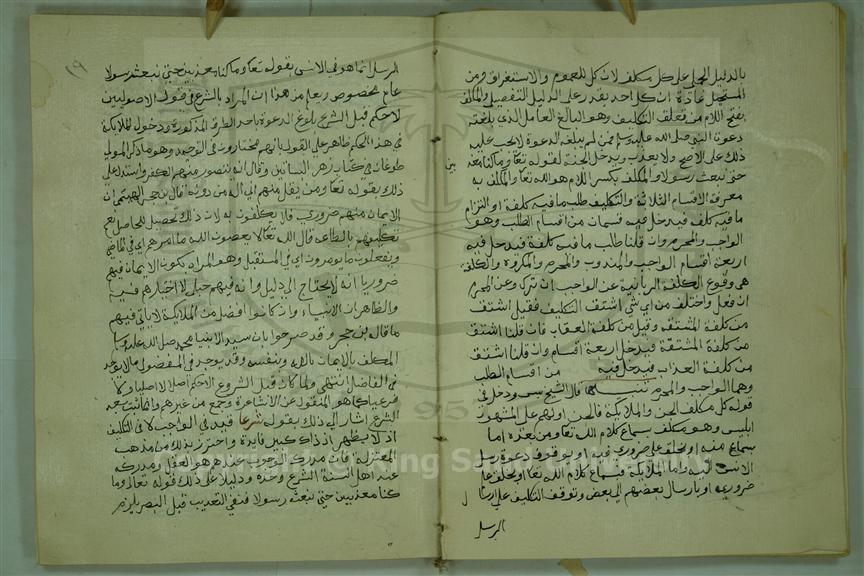 بالدليل الجملي على كل مكلف لان كل للعموم والاستغراق ومن
المستحيل عادة ان كل احد يقدر على الدليل التفصيلي والمكلف
بفتح اللام من فعلف التكليف وهو البالغ العاقل الذي بلغته
دعوة النبي صلى الله عليه وسلم فمن لم يبلغه الدعوة لا يجب عليه
ذلك على الاصح ولا يعذب ويدخل الجنة لقوله تعا وما كنا معذ
بين
حتى نبعث رسولا والمكلف بكسر اللام هو الله تعا والمكلف به
معرفة الاقسام الثلاثة والتكليف طلب ما فيه كلفة او التزام
ما فيه كلف فيدخل فيه قسمان من اقسام الطلب وهو
الواجب والمحرم وان قلنا طلب ما فيه كلفة فيدخل فيه
اربعة اقسام الواجب والمندوب والمحرم والمكروه والكلفة
هي وقوع الكلف الربانية عن الواجب ان ترك وعن المحرم
ان فعل واختلف من اي شي اشتقت التكليف فقيل اشتقت
من كلفة المشتقة وقيل من كلفة العقاب فان قلنا اشتقت
من كلفة المشتقة فيدخل اربعة اقسام وان قلنا اشتقت
من كلفة العذاب فيدخل فيه من اقسام الطلب
وهما الواجب والمحرم تنبيه قال الشيخ يس ودخل في
قوله كل مكلف الجن والملايكة فالجن اولهم على المشهور
ابليس وهو مكلف بسماع كلام الله تعا ومن بعده اما
بسماع منه او بخلق علم ضروري فيه او بوقوف دعوة رسل
الانس فيه واما الملايكة فبسماع كلام الله تعا او بخلق علم
ضروري او بارسال بعضهم الي بعض وتوقف التكليف على ارسا
ل
المرسل
١٩
المرسل انما هو في الانس بقوله تعا وما كنا معذبين حتى نبعث رسولا
عام مخصوص ويعلم من هذا ان المراد بالشرع في قول الاصوليين
لا حكم قبل الشرع بلوغ الدعوة باحد الطرق المذكورة ودخول الملايكة
في هذا الحكم ظاهر على القول بانهم مختارون في التوحيد وهو ما ذكر المولى
طوغان في كتاب زهر البساتين وقال انه يتصور منهم الكفر واستدل على
ذلك بقوله تعا ومن يقل منهم اني اله من دونه قال بن حجر الهيتمي ان
الايمان منهم ضروري فلا يكلفون به لان ذلك تحصيل للحاصل نعم
تكليفهم بالطاعه قال الله تعالا يعصون الله ما امرهم اي في الماضي
ويفعلون ما يومرون اي في المستقبل وهو المراد بكون الايمان فيهم
ضروريا انه لا يحتاج الى دليل وانه فيهم جبلي لا اختيار لهم فيه
والظاهر ان الانبياء وان كانوا افضل من الملايكة لا ياتي فيهم
ما قال بن حجر وقد صرحوا بان سيد الانبيا محمد صلى الله عليه وسلم
مكلف بالايمان بالله وبنفسه وقد يوجد في المفضول ما لا يوجد
في الفاضل انتهى ولما كان قبل الشروع لا حكم اصلا لا اصليا ولا
فرعيا كما هو المنقول عن الاشاعرة وجمع من غيرهم وانما ثبت بعد
الشرع اشار الي ذلك بقوله شرعا قيد في الواجب لا في التكليف
اذ لا يظهر اذ ذاك كبير فايدة واحترز بذلك من مذهب
المعتزلة فان مدرك التوحيد عندهم هو العقل ومدركه
عند اهل السنة الشرع وحده ودليل على ذلك قوله تعالى وما
كنا معذبين حتى نبعث رسولا فنفي التعذيب قبل البعث يلزم